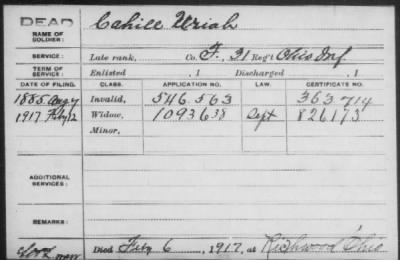 DEAD
NAME OF SOLDIER: Cahill Uriah
SERVICE: Late rank, Co. F. 31 Reg't Ohio Inf.
TERM OF SERVICE: Enlisted , 1 Discharged , 1
DATE OF FILING. CLASS. APPLICATION NO. LAW. CERTIFICATE NO.
1885 Aug 7 Invalid, 546.563 363.714
1917 Feb 12 Widow, 1093638 Sept 826173
Minor,
ADDITIONAL SERVICES:
REMARKS:
Died Feby 6, 1917, at Richwood Ohio